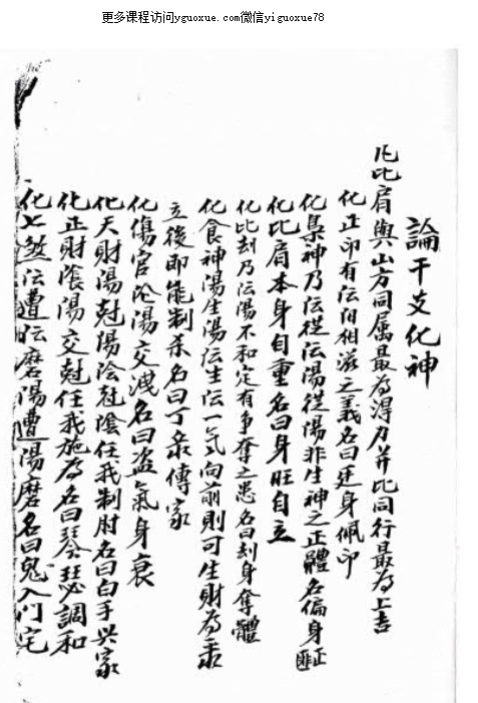 更多课程访问yguoxue.com微信yiguoxue78
論干支化神
化比肩與山方同属最為得力并比同行最為上吉
化正印有阴阳相滋之義名曰廷身佩印
化梟神乃阴從阴陽從陽非生神之正體名偏身
化比肩本身自重名曰身旺自立
化比刼乃阴陽不和定有争奪之患名曰刼身奪體
化食神陽生陽阴生阴一气向前則可生財為
立後即能制杀名曰丁永傳家
化傷官阴陽交洩名曰盗氣身衰
化天財陽尅陽陰尅陰任我制財名曰白手兴家
化正財陰陽交尅任我施為名曰琴瑟調和
化七煞阴遭阴磨陽遭陽磨名曰鬼入门宅